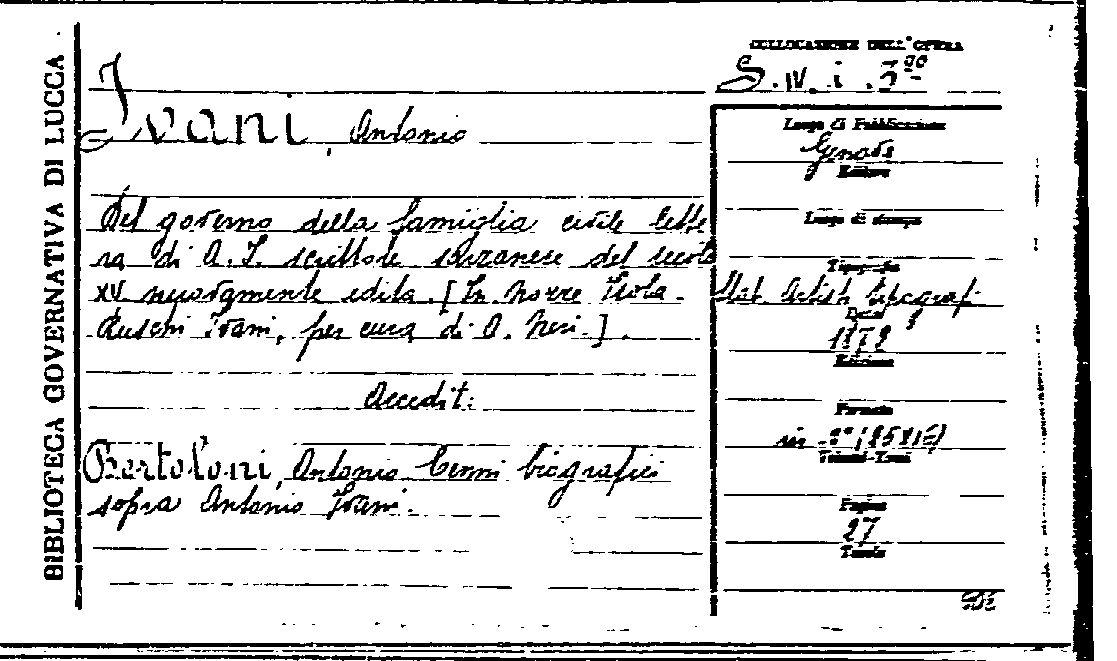 BIBLIOTECA GOVERNATIVA DI LUCCA
COLLOCAZIONE DELL'OPERA
S. IV. i. 3⁹⁰
Ivani, Antonio
Del governo della famiglia civile lette
ra di A. I. scrittore sarzanese del secolo
XV nuovamente edita. [In Nozze Isola-
Ruschi Ivani, per cura di A. Neri.].
Accedit:
Bertoloni, Antonio Cenni biografici
sopra Antonio Ivani.
Luogo di Pubblicazione
Genova
Editore
Luogo di stampa
Tipografia
Stab. Artisti tipografi
Data
Edizione
Formato
in
Volumi-Tomi
Pagine
27
Tavole